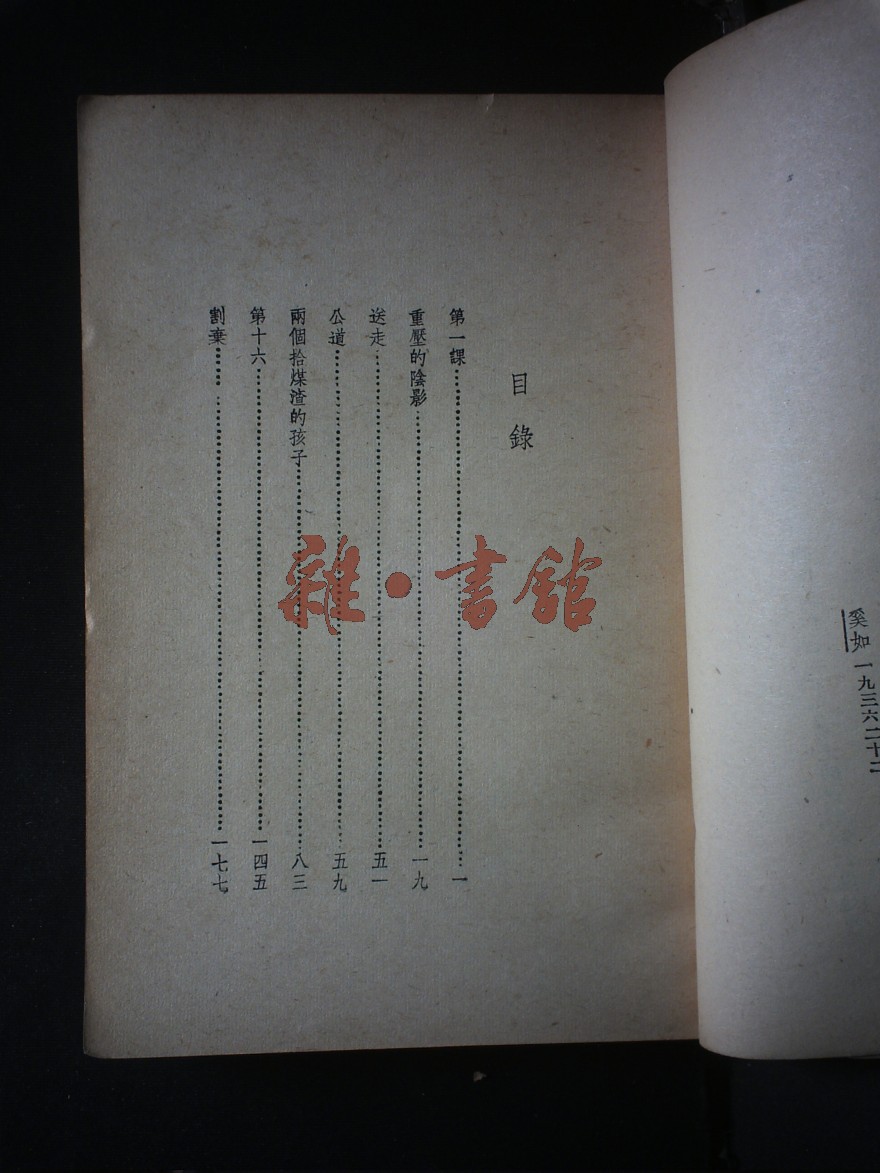 奚如 一九三六二十二
目錄
第一課……一
重壓的陰影……一九
送走……五一
公道……五九
兩個拾煤渣的孩子……八三
第十六……一四五
割棄……一七七
雜·書館